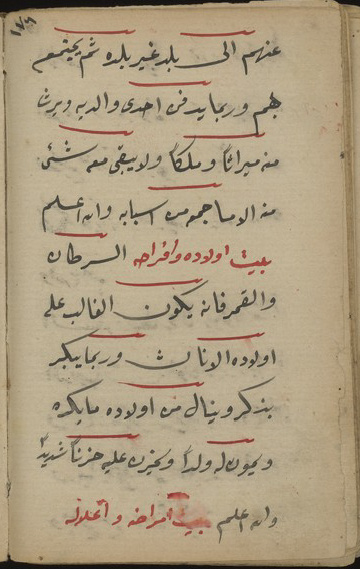 ١٧٩
عنهم الى بلد غير بلده ثم يجتمع
بهم وربما يدفن احدى والديه ويرث
منه ميراثا وملكا ولا يبقى معه شئ
من الاما جمعه من اسبابه والله اعلم
بيت اولاده وافراحه السرطان
والقمر فانه يكون الغالب على
اولاده الاناث وربما يبكر
بذكر وينال من اولاده ما يكره
ويموت له ولدا ويحزن عليه حزنا شديدا
والله اعلم بيت امراضه واعلاله